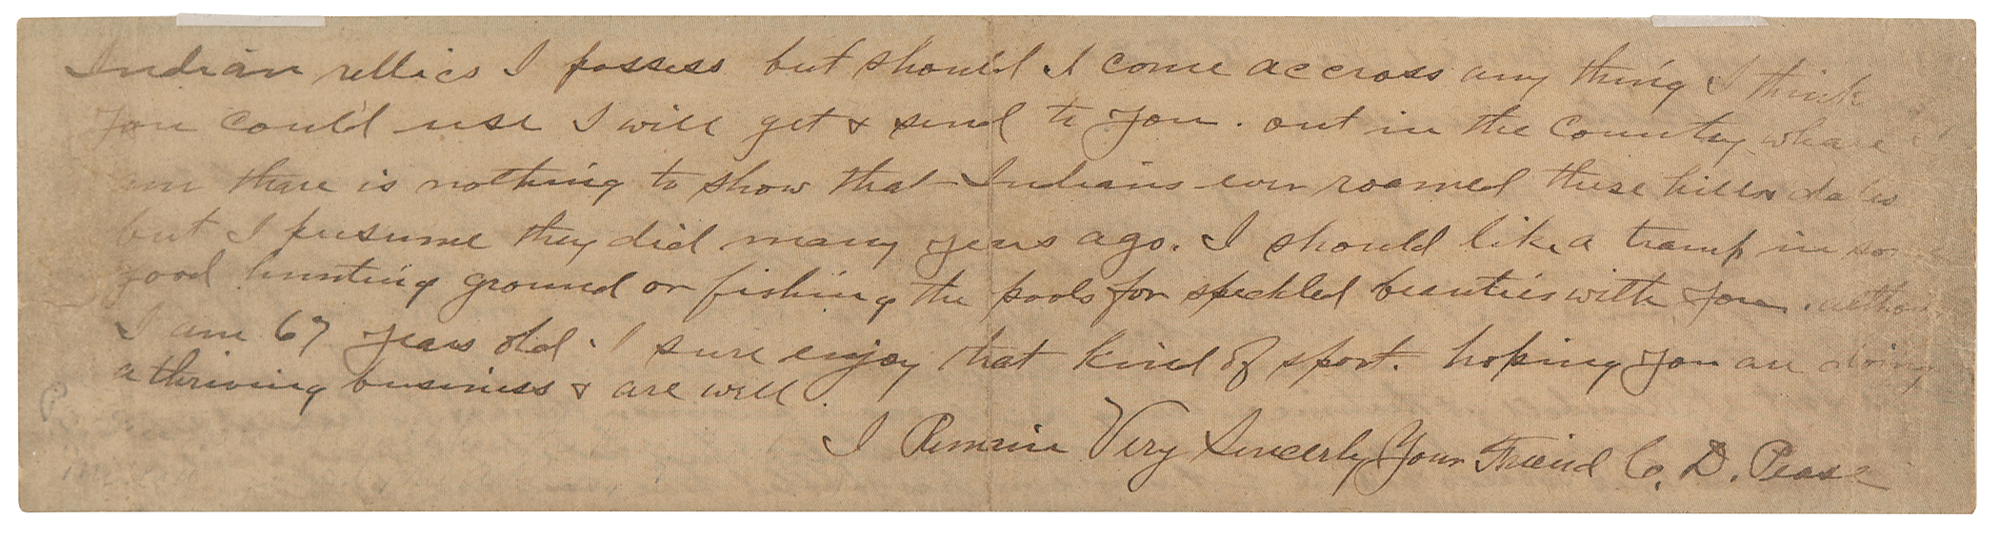 Indian rellics I possess but should I come accross any thing I think
you could use I will get & send to you. out in the Country whare I
am thare is nothing to show that Indians ever roamed these hills & dales
but I presume they did many years ago. I should like a tramp in some
good hunting ground or fishing the pools for speckled beauties with you. altho
I am 67 years old. I sure enjoy that kind of sport. hoping you are doing
a thriving business & are well.
I Remain Very Sincerly Your Friend C. D. Pease